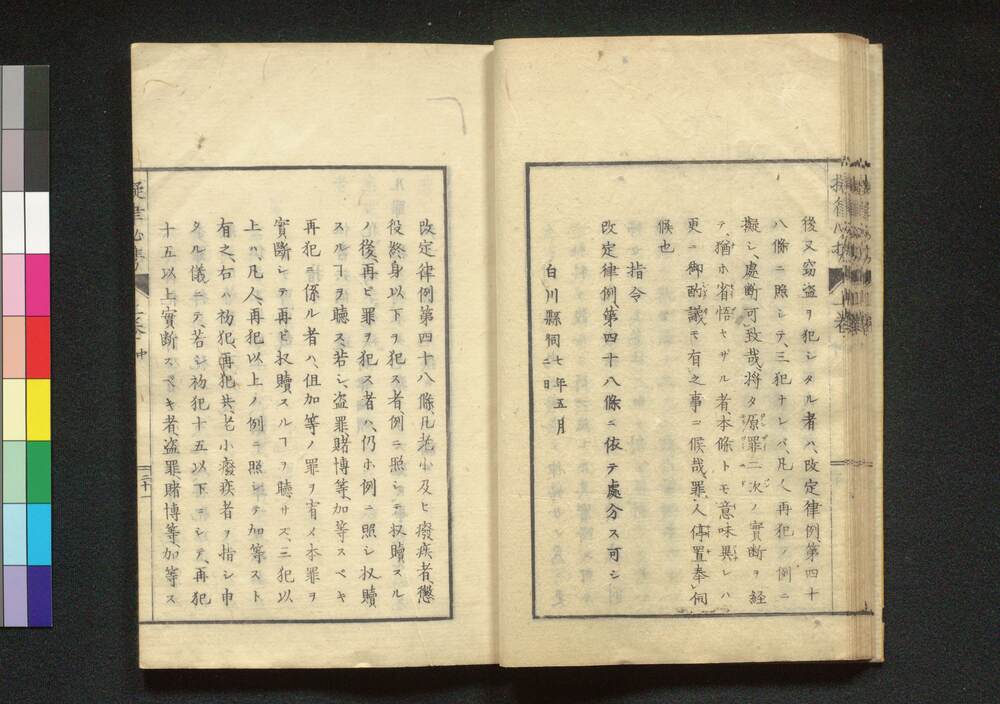 後又竊盗ヲ犯シタル者ハ、改定律例、第四十
八條ニ照シテ、三犯ナレバ、凡人再犯ノ例ニ
擬シ、處斷可致哉、將タ原罪二次ノ實斷ヲ經
テ、猶ホ省悟セザル者、本條トモ意味異レハ
更ニ御酌議モ有之事ニ候哉、罪人停置奉伺
候也
指令
改定律例、第四十八條ニ依テ處分ス可シ
白川縣伺 七年五月
二日
改定律例第四十八條、凡老小及ヒ癈疾者、懲
役終身以下ヲ犯ス者例ニ照シテ収贖スル
ノ後、再ビ罪ヲ犯ス者ハ、仍ホ例ニ照シ収贖
スルヿヲ聴ス、若シ、盗罪、賭博等、加等スベキ
再犯ニ係ル者ハ、但加等ノ罪ヲ宥メ本罪ヲ
實斷シテ再ビ収贖スルヿヲ聴サス、三犯以
上ハ、凡人、再犯以上ノ例ニ照シテ加等スト
有之、右ハ初犯、再犯共、老小癈疾者ヲ指シ申
タル儀ニテ、若シ初犯十五以下ニシテ、再犯
十五以上實斷スベキ者、盗罪賭博等加等ス